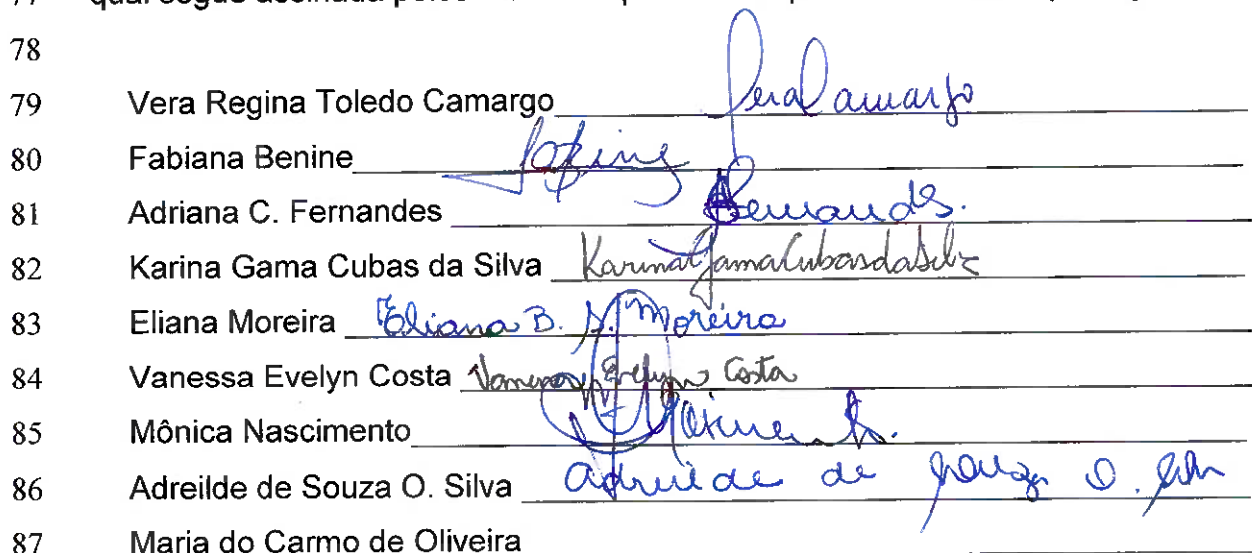 77 qual segue assinada pelos
78
79 Vera Regina Toledo Camargo Vera Camargo
80 Fabiana Benine
81 Adriana C. Fernandes Fernandes.
82 Karina Gama Cubas da Silva Karina Gama Cubas da Silva
83 Eliana Moreira Eliana B. S. Moreira
84 Vanessa Evelyn Costa Vanessa Evelyn Costa
85 Mônica Nascimento
86 Adreilde de Souza O. Silva Adreilde de Souza O. Silva
87 Maria do Carmo de Oliveira